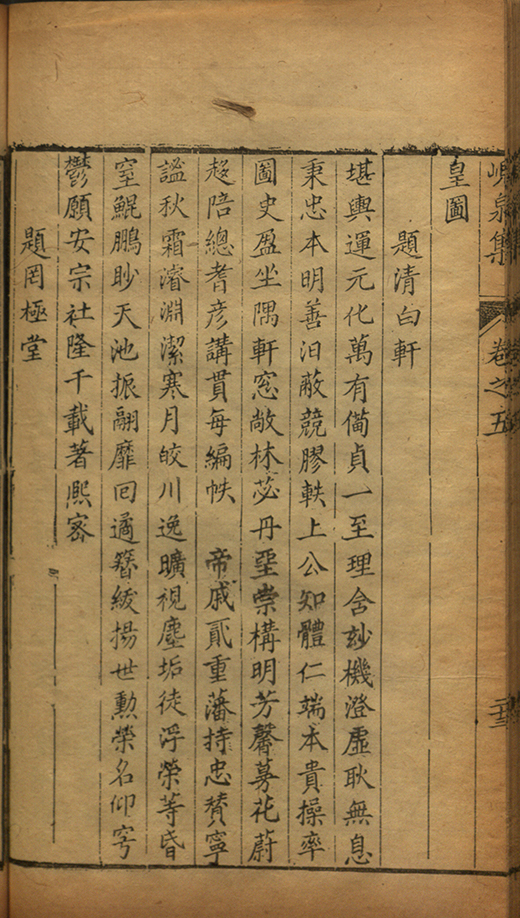 峴泉集 卷之五 二十三
皇圖
題清白軒
堪輿運元化萬有備貞一至理含玅機澄虛耿無息
秉忠本明善汩蔽競膠軼上公知體仁端本貴操率
圖史盈坐隅軒窓敞林苾丹堊崇構明芳馨蕚花蔚
趍陪總耆彦講貫每編帙 帝戚貳重藩持忠賛寧
謐秋霜濬淵潔寒月皎川逸曠視塵垢徒浮榮等昏
窒鯤鵬眇天池振翮靡囘遹簪紱揚世勲榮名仰穹
鬱願安宗社隆千載著熈宻
題罔極堂